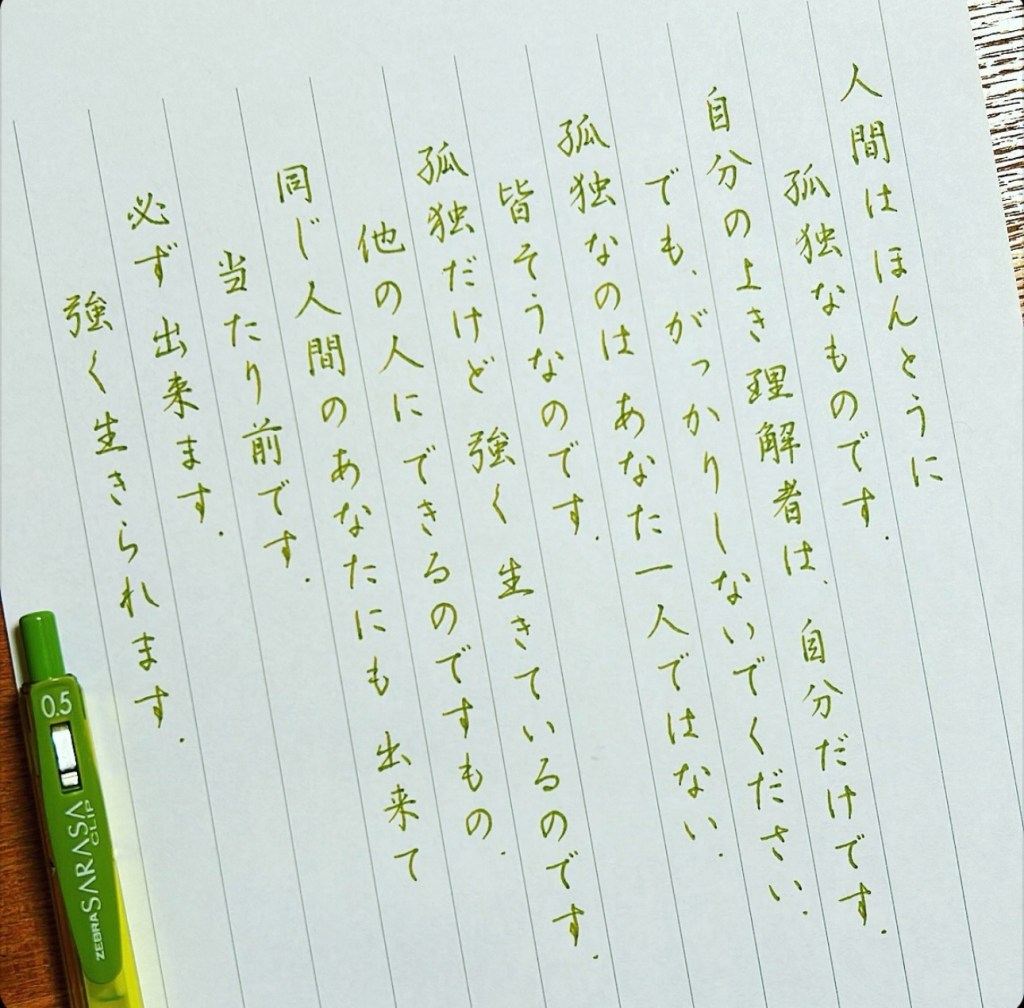 人間はほんとうに
孤独なものです.
自分のよき理解者は、自分だけです.
でも、がっかりしないでください.
孤独なのは あなた一人ではない.
皆そうなのです.
孤独だけど 強く 生きているのです.
他の人にできるのですもの.
同じ人間のあなたにも 出来て
当たり前です.
必ず 出来ます.
強く生きられます.
0.5
ZEBRA SARASA CLIP